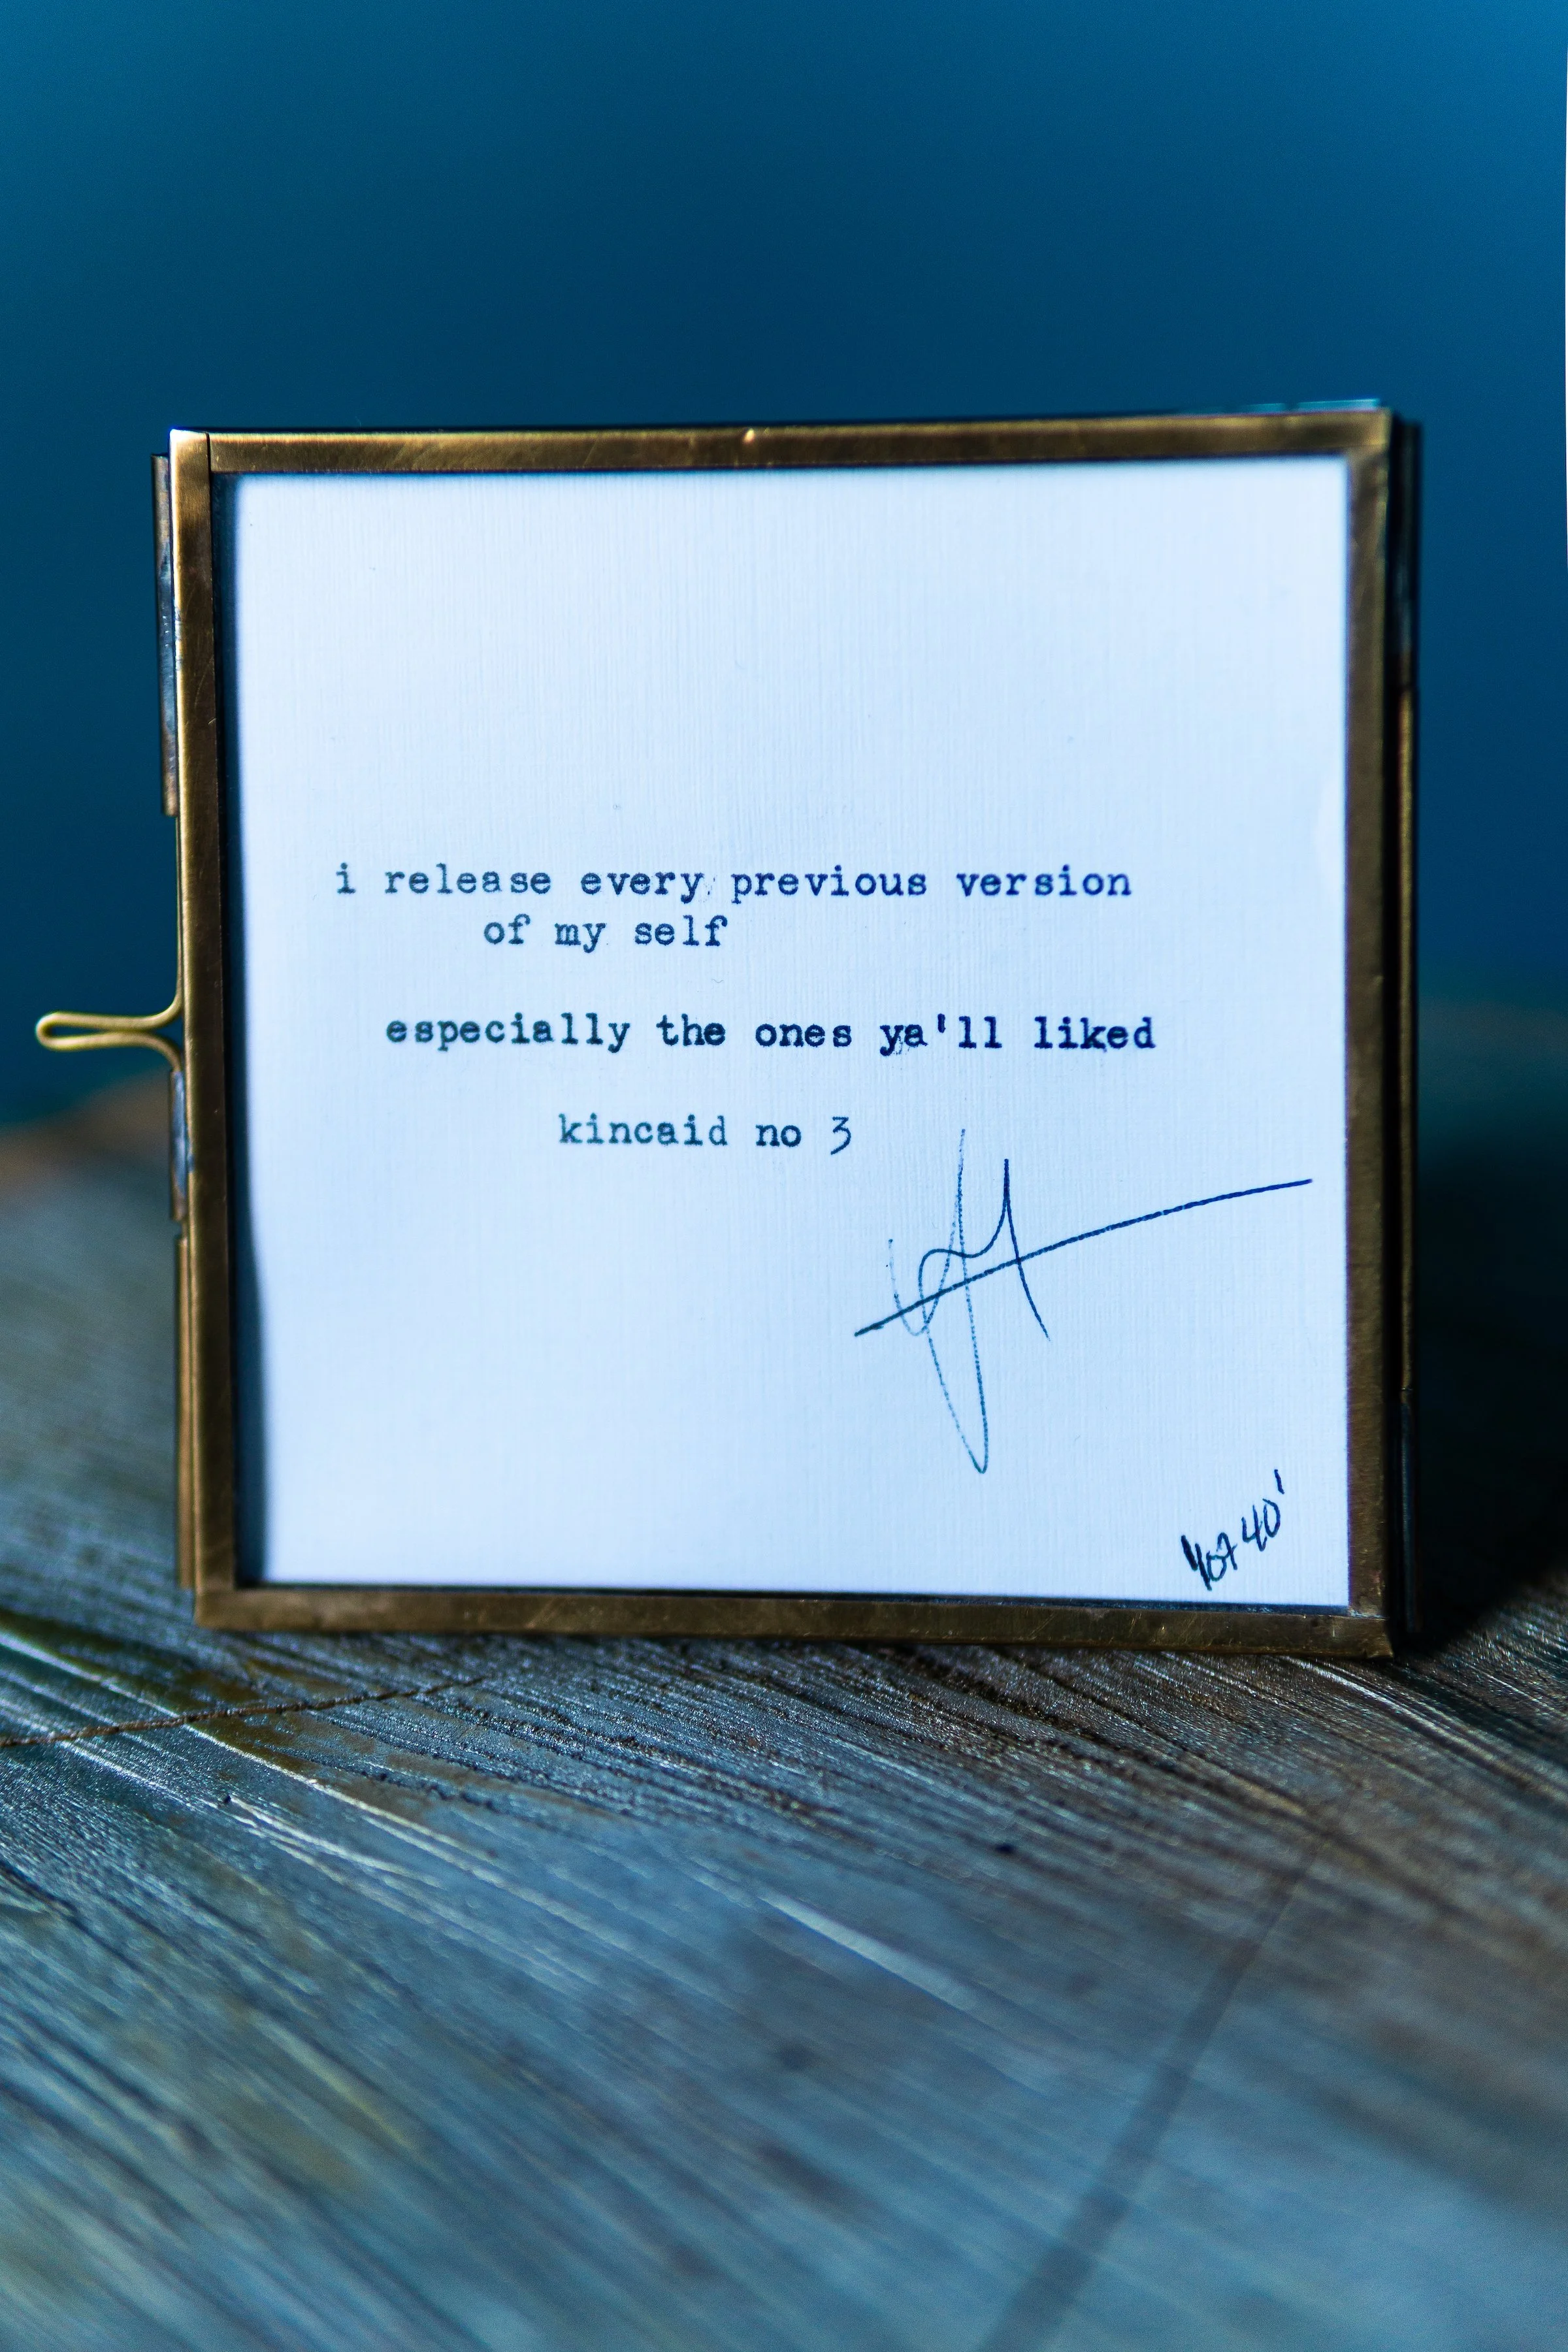 i release every previous version
of my self
especially the ones ya'll liked
kincaid no 3